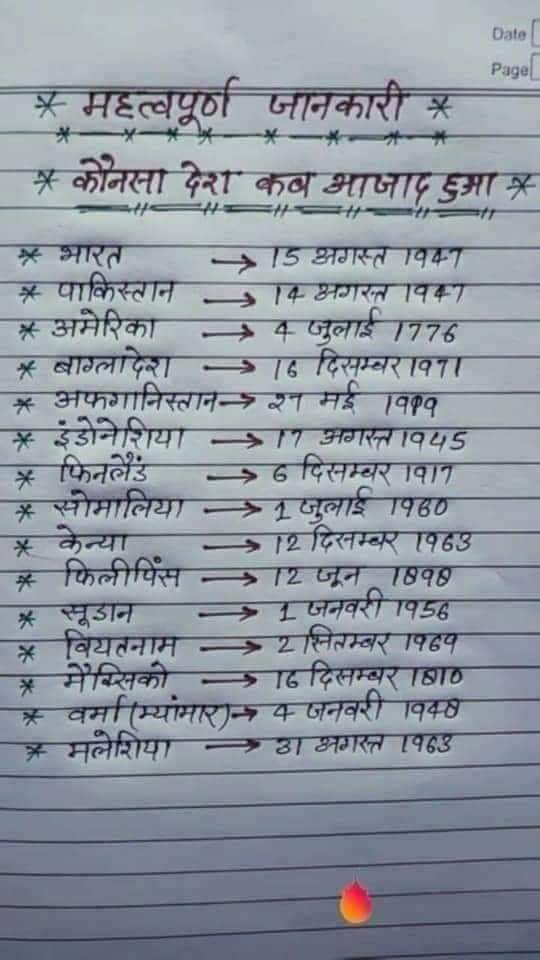 Date
Page
* महत्वपूर्ण जानकारी *
* कौनसा देश कब आजाद हुआ *
* भारत → 15 अगस्त 1947
* पाकिस्तान → 14 अगस्त 1947
* अमेरिका → 4 जुलाई 1776
* बाग्लादेश → 16 दिसम्बर 1971
* अफगानिस्तान → 27 मई 1919
* इंडोनेशिया → 17 अगस्त 1945
* फिनलैंड → 6 दिसम्बर 1917
* सोमालिया → 1 जुलाई 1960
* केन्या → 12 दिसम्बर 1963
* फिलीपिंस → 12 जून 1898
* सूडान → 1 जनवरी 1956
* वियतनाम → 2 सितम्बर 1969
* मैक्सिको → 16 दिसम्बर 1810
* वर्मा (म्यांमार) → 4 जनवरी 1948
* मलेशिया → 31 अगस्त 1963